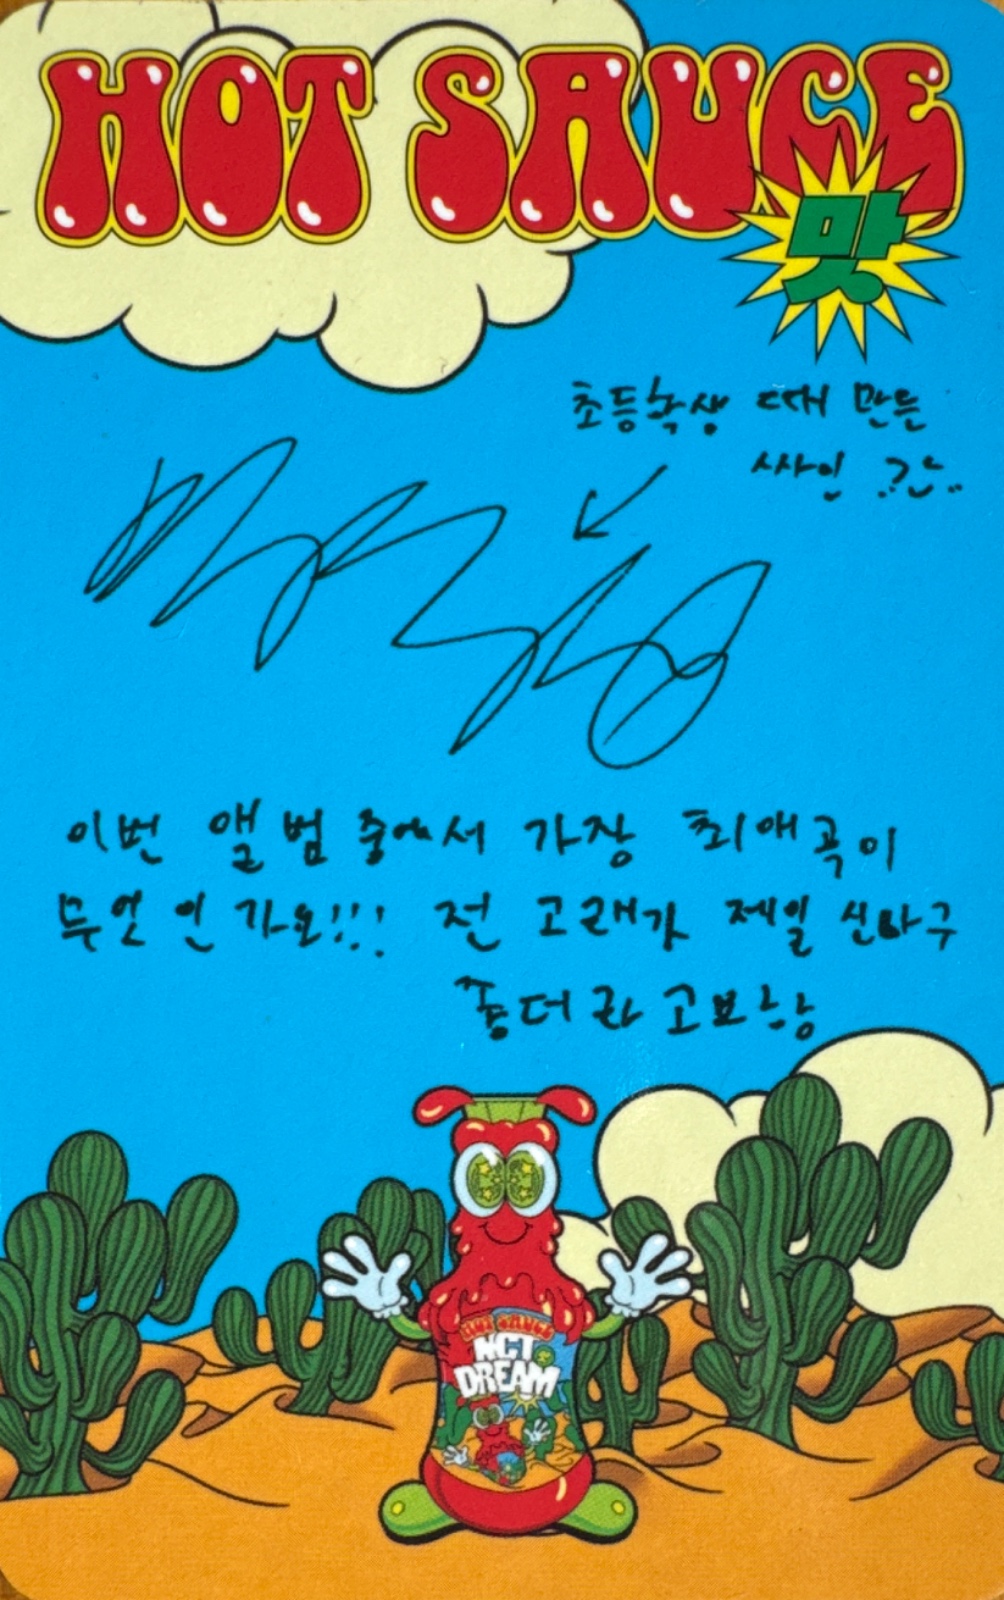 HOT SAUCE
맛
초등학생 때 만든
싸인
이번 앨범 중에서 가장 최애곡이
무엇인가요!!! 전 고래가 제일 신나구
좋더라고요
HOT SAUCE
NCT
DREAM